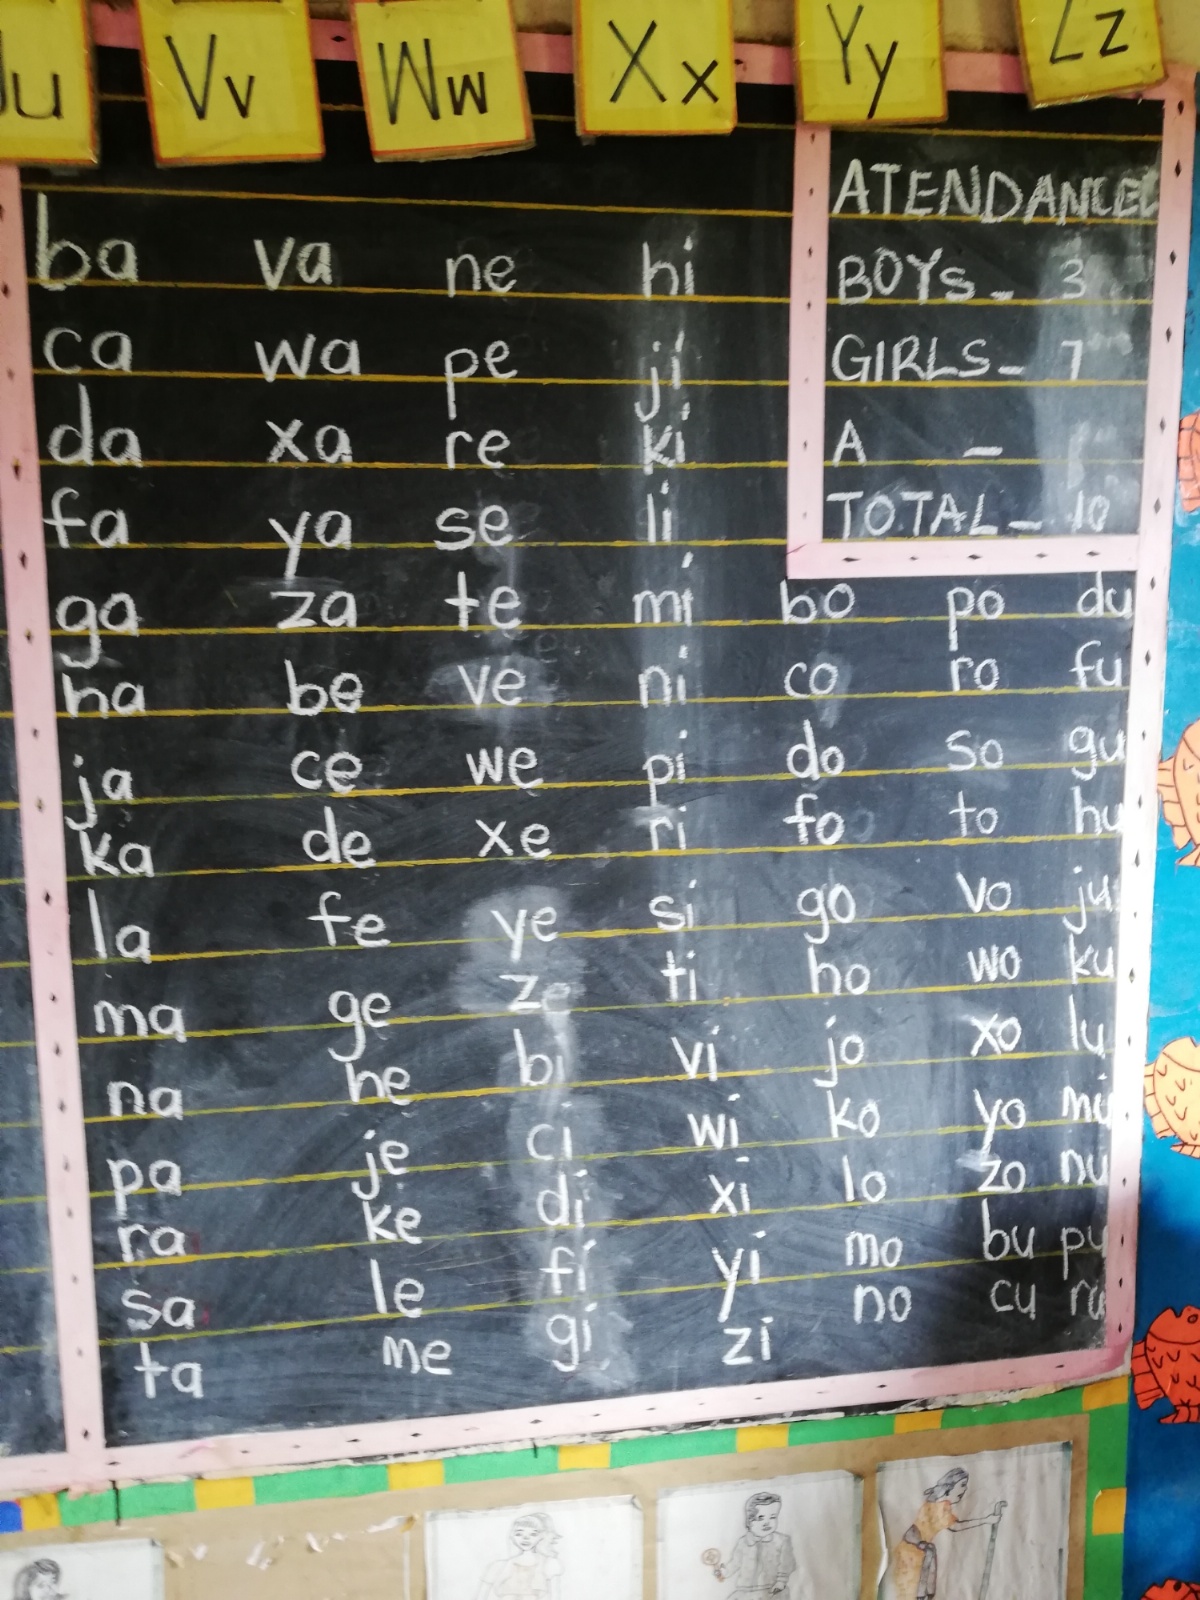 Uu Vv Ww Xx Yy Zz
ATENDANCE
BOYS - 3
GIRLS - 7
A -
TOTAL - 10
ba va ne hi
ca wa pe ji
da xa re ki
fa ya se li
ga za te mi bo po du
ha be ve ni co ro fu
ja ce we pi do so gu
ka de xe ri fo to hu
la fe ye si go vo ju
ma ge ze ti ho wo ku
na he bi vi jo xo lu
pa je ci wi ko yo mu
ra ke di xi lo zo nu
sa le fi yi mo bu pu
ta me gi zi no cu ru